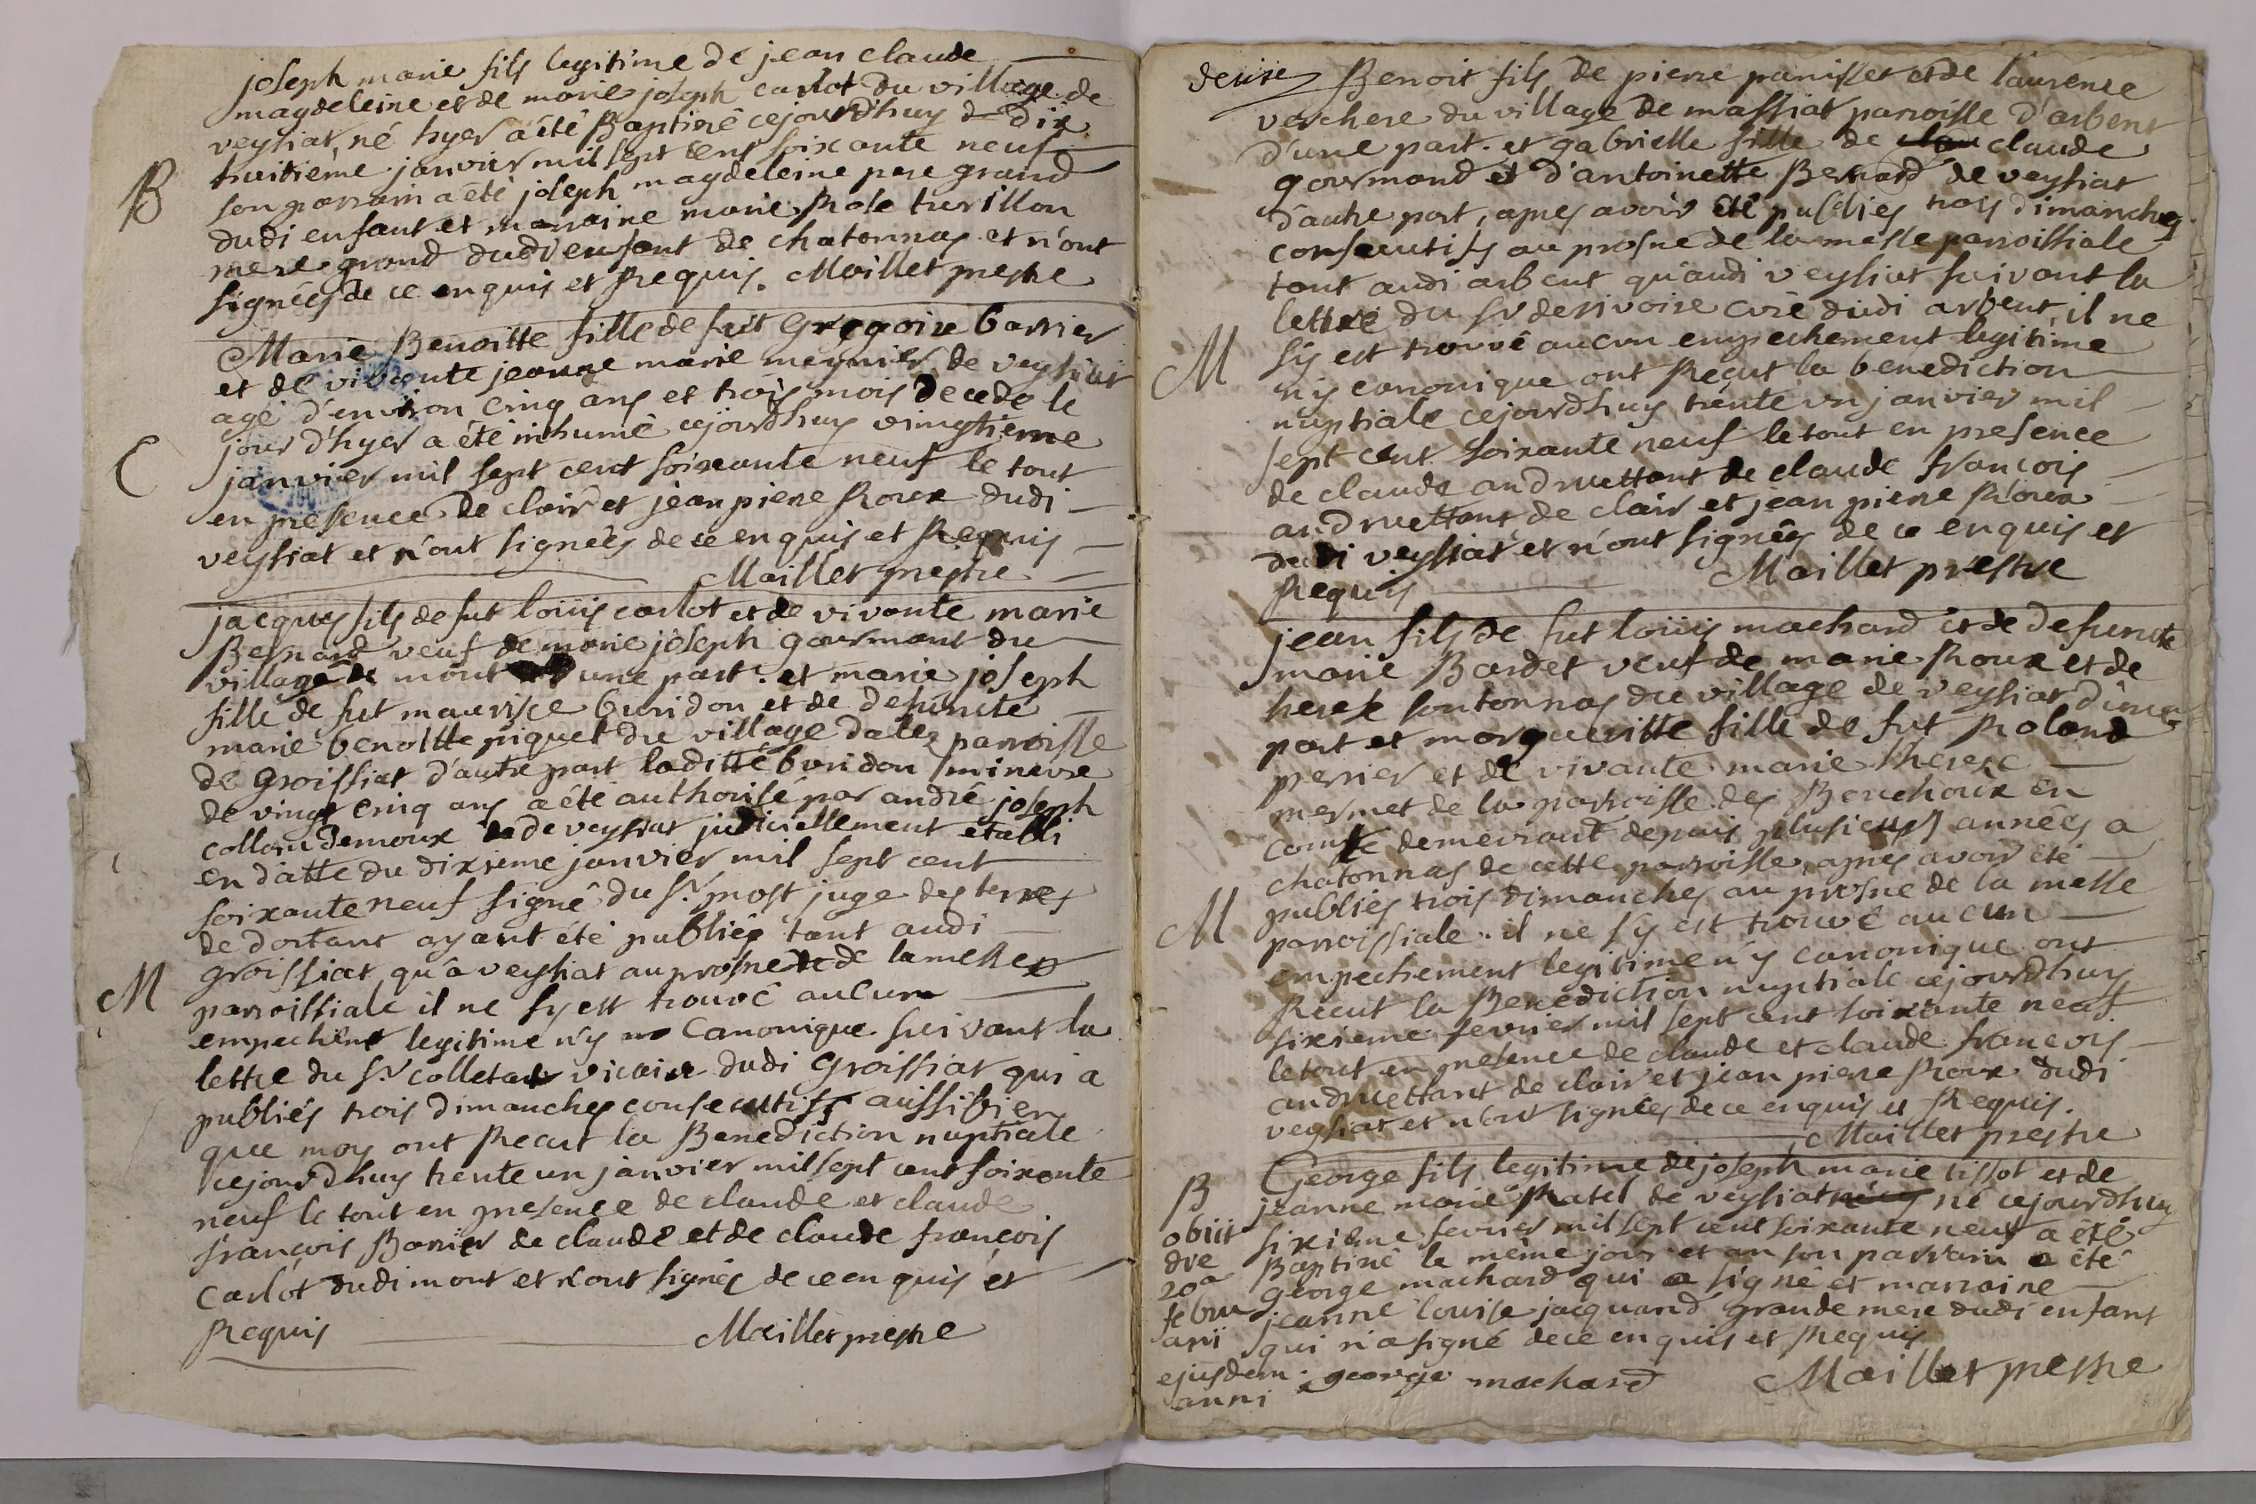 joseph marie fils legitime de jean claude
magdeleine et de marie joseph carlot du village de
veyssiat, né hyer a été Baptisé cejourdhuy dix
huitième janvier mil sept cens soixante neuf
B
son parrain a été joseph magdeleine pere grand
dudi enfant et marraine marie Rose turillon
mere grand dudi enfant de chatonnas et n'ont
signées de ce enquis et Requis. Maillet prestre
Marie Benoitte fille de fut Gregoire barrier
et de vivante jeanne marie meynier de veyssiat
agé d'environ cinq ans et trois mois decede le
jour d'hyer a été inhumé cejourdhuy vingtieme
C
janvier mil sept cent soixante neuf le tout
en presence de clair et jean pierre Roux dudi
veyssiat et n'ont signées de ce enquis et Requis
Maillet prestre
jacques fils de fut loüis carlot et de vivante marie
Bernard veuf de marie joseph gourmant du
village de mont d'une part. et marie joseph
fille de fut maurisce buridon et de defuncte
marie benoitte piquet du village dalex parroisse
de Groissiat d'autre part laditte buridon mineure
de vingt cinq ans a été authorisé par andré joseph
colloudemoux de veyssiat judiciellement etabli
en datte du dixieme janvier mil sept cent
soixante neuf signé du sr. most juge des terres
de dortant ayant été publiés tant audi
groissiat qu'a veyssiat au prosne de la messe
M
parroissiale il ne sy est trouvé aucun
empechent legitime n'y canonique suivant la
lettre du sr. colletat vicaire dudi Groissiat qui a
publiés trois dimanches consecutifs aussi bien
que moy ont Recut la Benediction nuptiale
cejourdhuy trente un janvier mil sept cent soixante
neuf le tout en presence de claude et claude
françois Barrier de claude et de claude françois
carlot dudi mont et n'ont signés de ce enquis et
Requis Maillet prestre
desire Benoit fils de pierre panisset et de laurence
verchere du village de massiat parroisse d'arbent
d'une part. et gabrielle fille de claude
gourmand et d'antoinette Bernard de veyssiat
d'autre part, apres avoir été publiés trois dimanches
consecutifs au prosne de la messe parroissiale
tant audi arbent qu'audi veyssiat suivant la
lettre du sr derivoire curé dudi arbent, il ne
M
sy est trouvé aucun empechement legitime
n'y canonique ont Recut la benediction
nuptiale cejourdhuy trente un janvier mil
sept cent soixante neuf le tout en presence
de claude andruettant de claude françois
andruettant de clair et jean pierre Roux
dudi veyssiat et n'ont signées de ce enquis et
Requis Maillet prestre
jean fils de fut loüis machard et de defuncte
marie Bardet veuf de marie Roux et de
herese sontonnas du village de veyssiat d'une
part et margueritte fille de fut Roland
perrier et de vivante marie therese
mermet de la parroisse des Bouchoux en
comte demeurant depuis plusieurs années a
chatonnas de cette parroisse, apres avoir été
publiés trois dimanches au prosne de la messe
M
parroissiale. il ne sy est trouvé aucun
empechement legitime n'y canonique ont
Recut la Benediction nuptiale cejourdhuy
sixieme fevrier mil sept cent soixante neuf
le tout en presence de claude et claude françois
andruettant de clair et jean pierre Roux dudi
veyssiat et n'ont signées de ce enquis et Requis.
Maillet prestre
B
George fils legitime de joseph marie tissot et de
jeanne marie Ratel de veyssiat né cejourdhuy
sixieme fevrier mil sept cent soixante neuf a été
Baptisé le même jour et an son parrain a été
george machard qui a signé et marraine
jeanne louise jacquand grande mere dudi enfant
qui n'a signé de ce enquis et Requis
obiit
die
20a
febru
arii
ejusdem
anni
george machard Maillet prestre